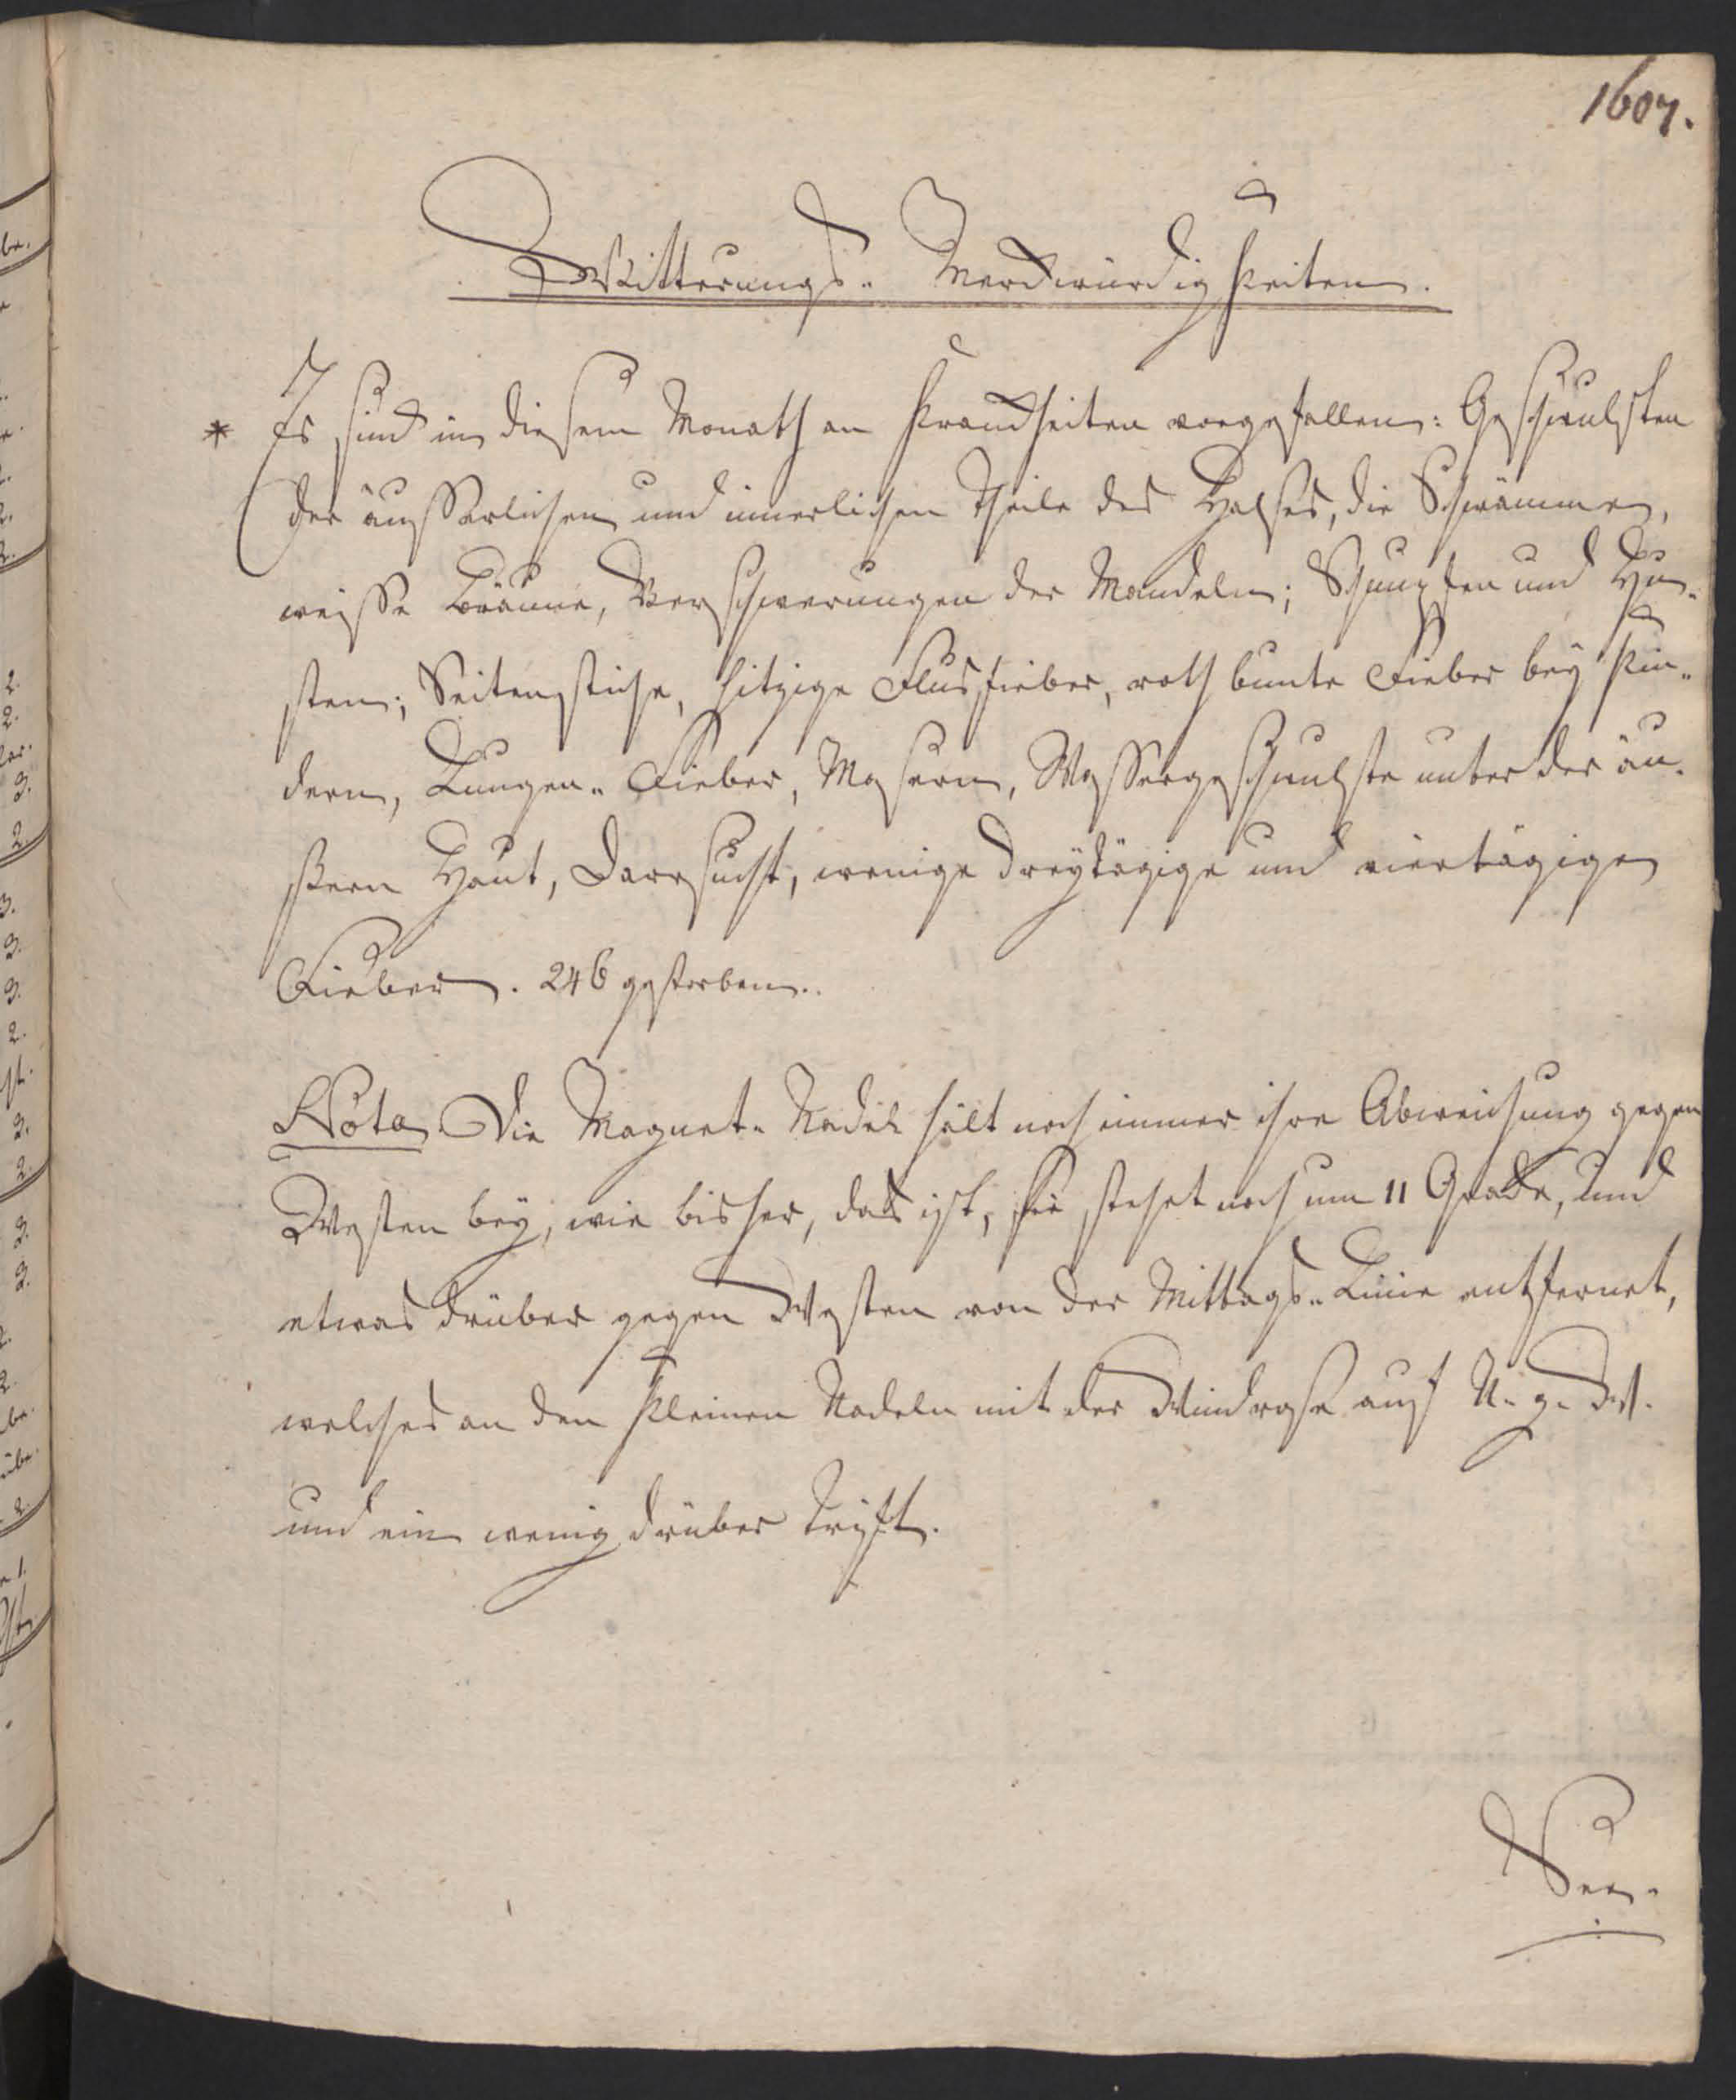 1607.
Witterungs- Merckwürdigkeiten.
* Es sind in diesem Monath an Kranckheiten vorgefallen: Geschwulsten
der äusserlichen und innerlichen Theile des Halses, die Schwämme,
weisse Bräune, Verschwerungen der Mandeln; Schnupfen und Hu-
sten; Seitenstiche, hitzige Flusfieber, roth bunte Fieber bey Kin-
dern, Lungen- Fieber, Masern, Wassergeschwulste unter der äu-
ssern Haut, Darrsucht, wenige dreytägige und viertägige
Fieber. 246 gestorben.
Nota Die Magnet- Nadel hält noch immer ihre Abweichung gegen
Westen bey, wie bisher, das ist, sie stehet noch um 11 Grade, und
etwas drüber gegen Westen von der Mittags- Linie entfernet,
welches an den kleinen Nadeln mit der Windrose auf N. g. W.
und ein wenig drüber trifft.